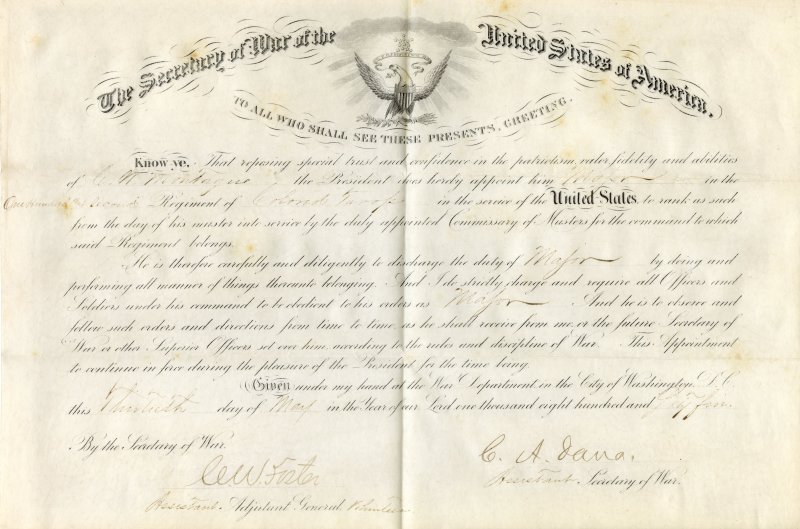 The Secretary of War of the United States of America.
TO ALL WHO SHALL SEE THESE PRESENTS, GREETING.
Know ye, That reposing special trust and confidence in the patriotism, valor, fidelity and abilities
of C. W. the President does hereby appoint him Major in the
One hundred & second Regiment of Colored Troops in the service of the United States, to rank as such
from the day of his muster into service by the duly appointed Commissary of Musters for the command to which
said Regiment belongs.
He is therefore carefully and diligently to discharge the duty of Major by doing and
performing all manner of things thereunto belonging. And I do strictly charge and require all Officers and
Soldiers under his command to be obedient to his orders as Major And he is to observe and
follow such orders and directions from time to time, as he shall receive from me, or the future Secretary of
War or other Superior Officers set over him, according to the rules and discipline of War. This Appointment
to continue in force during the pleasure of the President for the time being.
Given under my hand at the War Department in the City of Washington, D. C.
this Thirtieth day of May in the Year of our Lord one thousand eight hundred and
By the Secretary of War.
C. W. Foster
C. A. Dana.
Assistant Adjutant General Volunteers
Assistant Secretary of War.